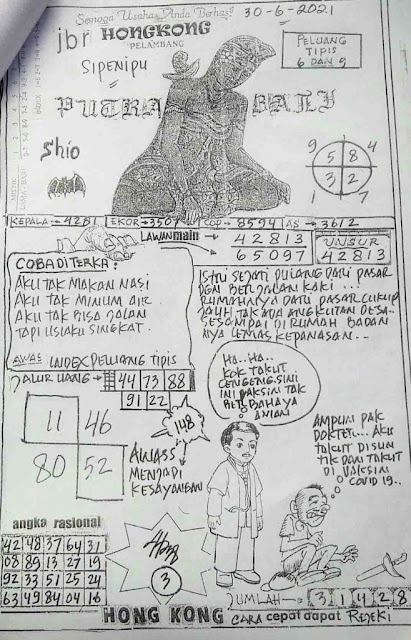 Semoga Usaha Anda Berhasil
30-6-2021
jbr HONGKONG
PELAMBANG
SIPENIPU
PELUANG
TIPIS
6 DAN 9
PUTRA BALI
Shio
9 4
5 8
3 2
1 7
KEPALA → 4281 EKOR → 3507 COP → 8594 AS → 3612
LAWAN main → 42813
→ 65097
UNSUR
42813
COBA DITERKA:
AKU TAK MAKAN NASI
AKU TAK MINUM AIR
AKU TAK BISA JALAN
TAPI USIAKU SINGKAT.
AWAS INDEX PELUANG TIPIS
ISTRI SEJATI PULANG DARI PASAR
DGN BERJALAN KAKI...
RUMAHNYA DARI PASAR CUKUP
JAUH TAK ADA ANGKUTAN DESA..
SESAMPAI DI RUMAH BADAN
NYA LEMAS KEPANASAN...
JALUR UANG → 44 73 88
91 22
11 46
80 52
148
AWASS
MENJADI
KESAYANGAN
HA..HA..
KOK TAKUT
CENGENG SINI
INI VAKSIN TAK
BERBAHAYA
AMPUN PAK
DOKTER... AKU
TAKUT DISUN
TIK DAN TAKUT
DI VAKSIN
COVID 19..
angka rasional
42 48 37 64 31
08 89 13 27 19
92 33 51 25 24
63 49 84 04 16
3
JUMLAH → 3 1 4 2 8
HONG KONG CARA cepat dapat REJEKI